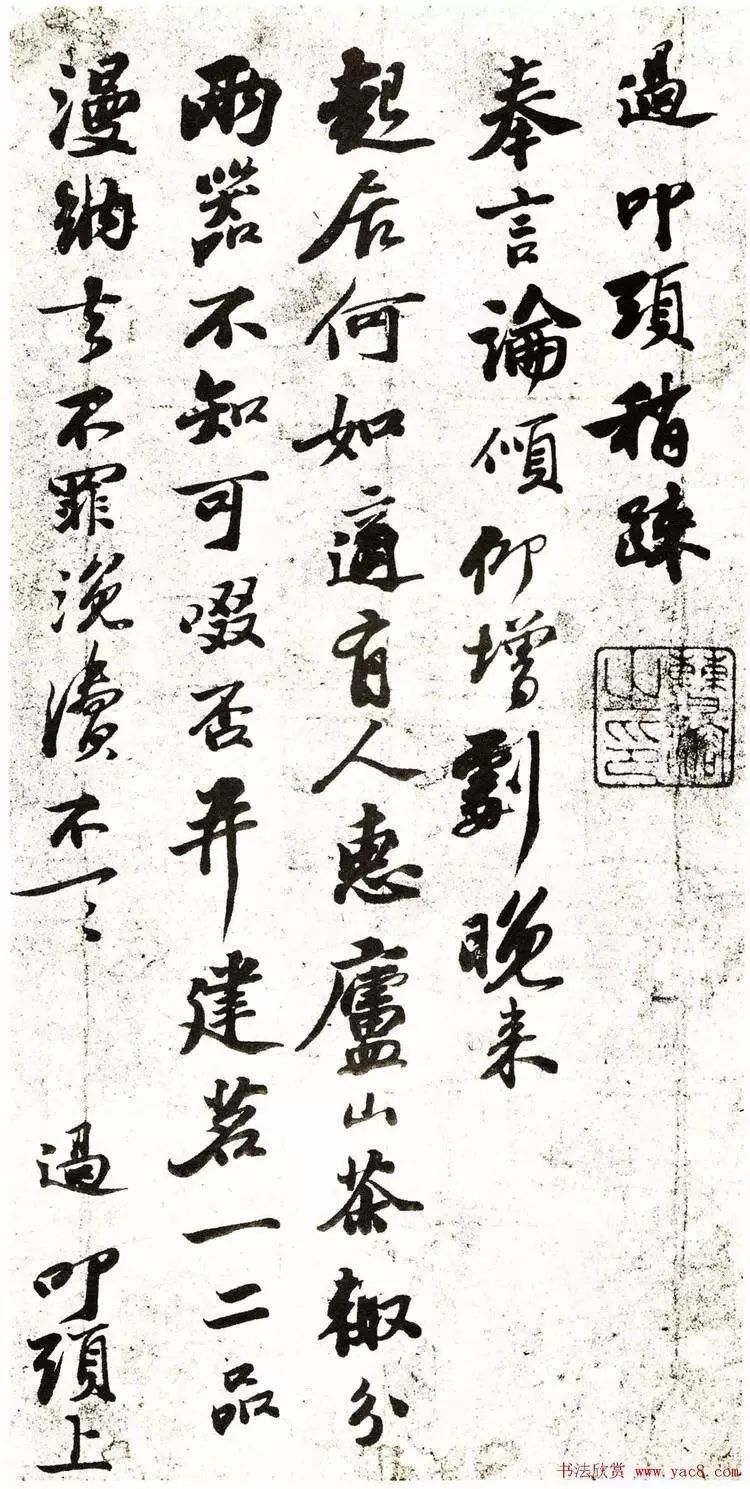 過叩頭稍踈
奉言論傾仰增劇晚来
起居何如適有人惠廬山茶輙分
兩器不知可啜否并建茗一二品
漫納去不罪浼瀆不一一 過叩頭上
曹溶之印
书法欣赏 www.yac8.com